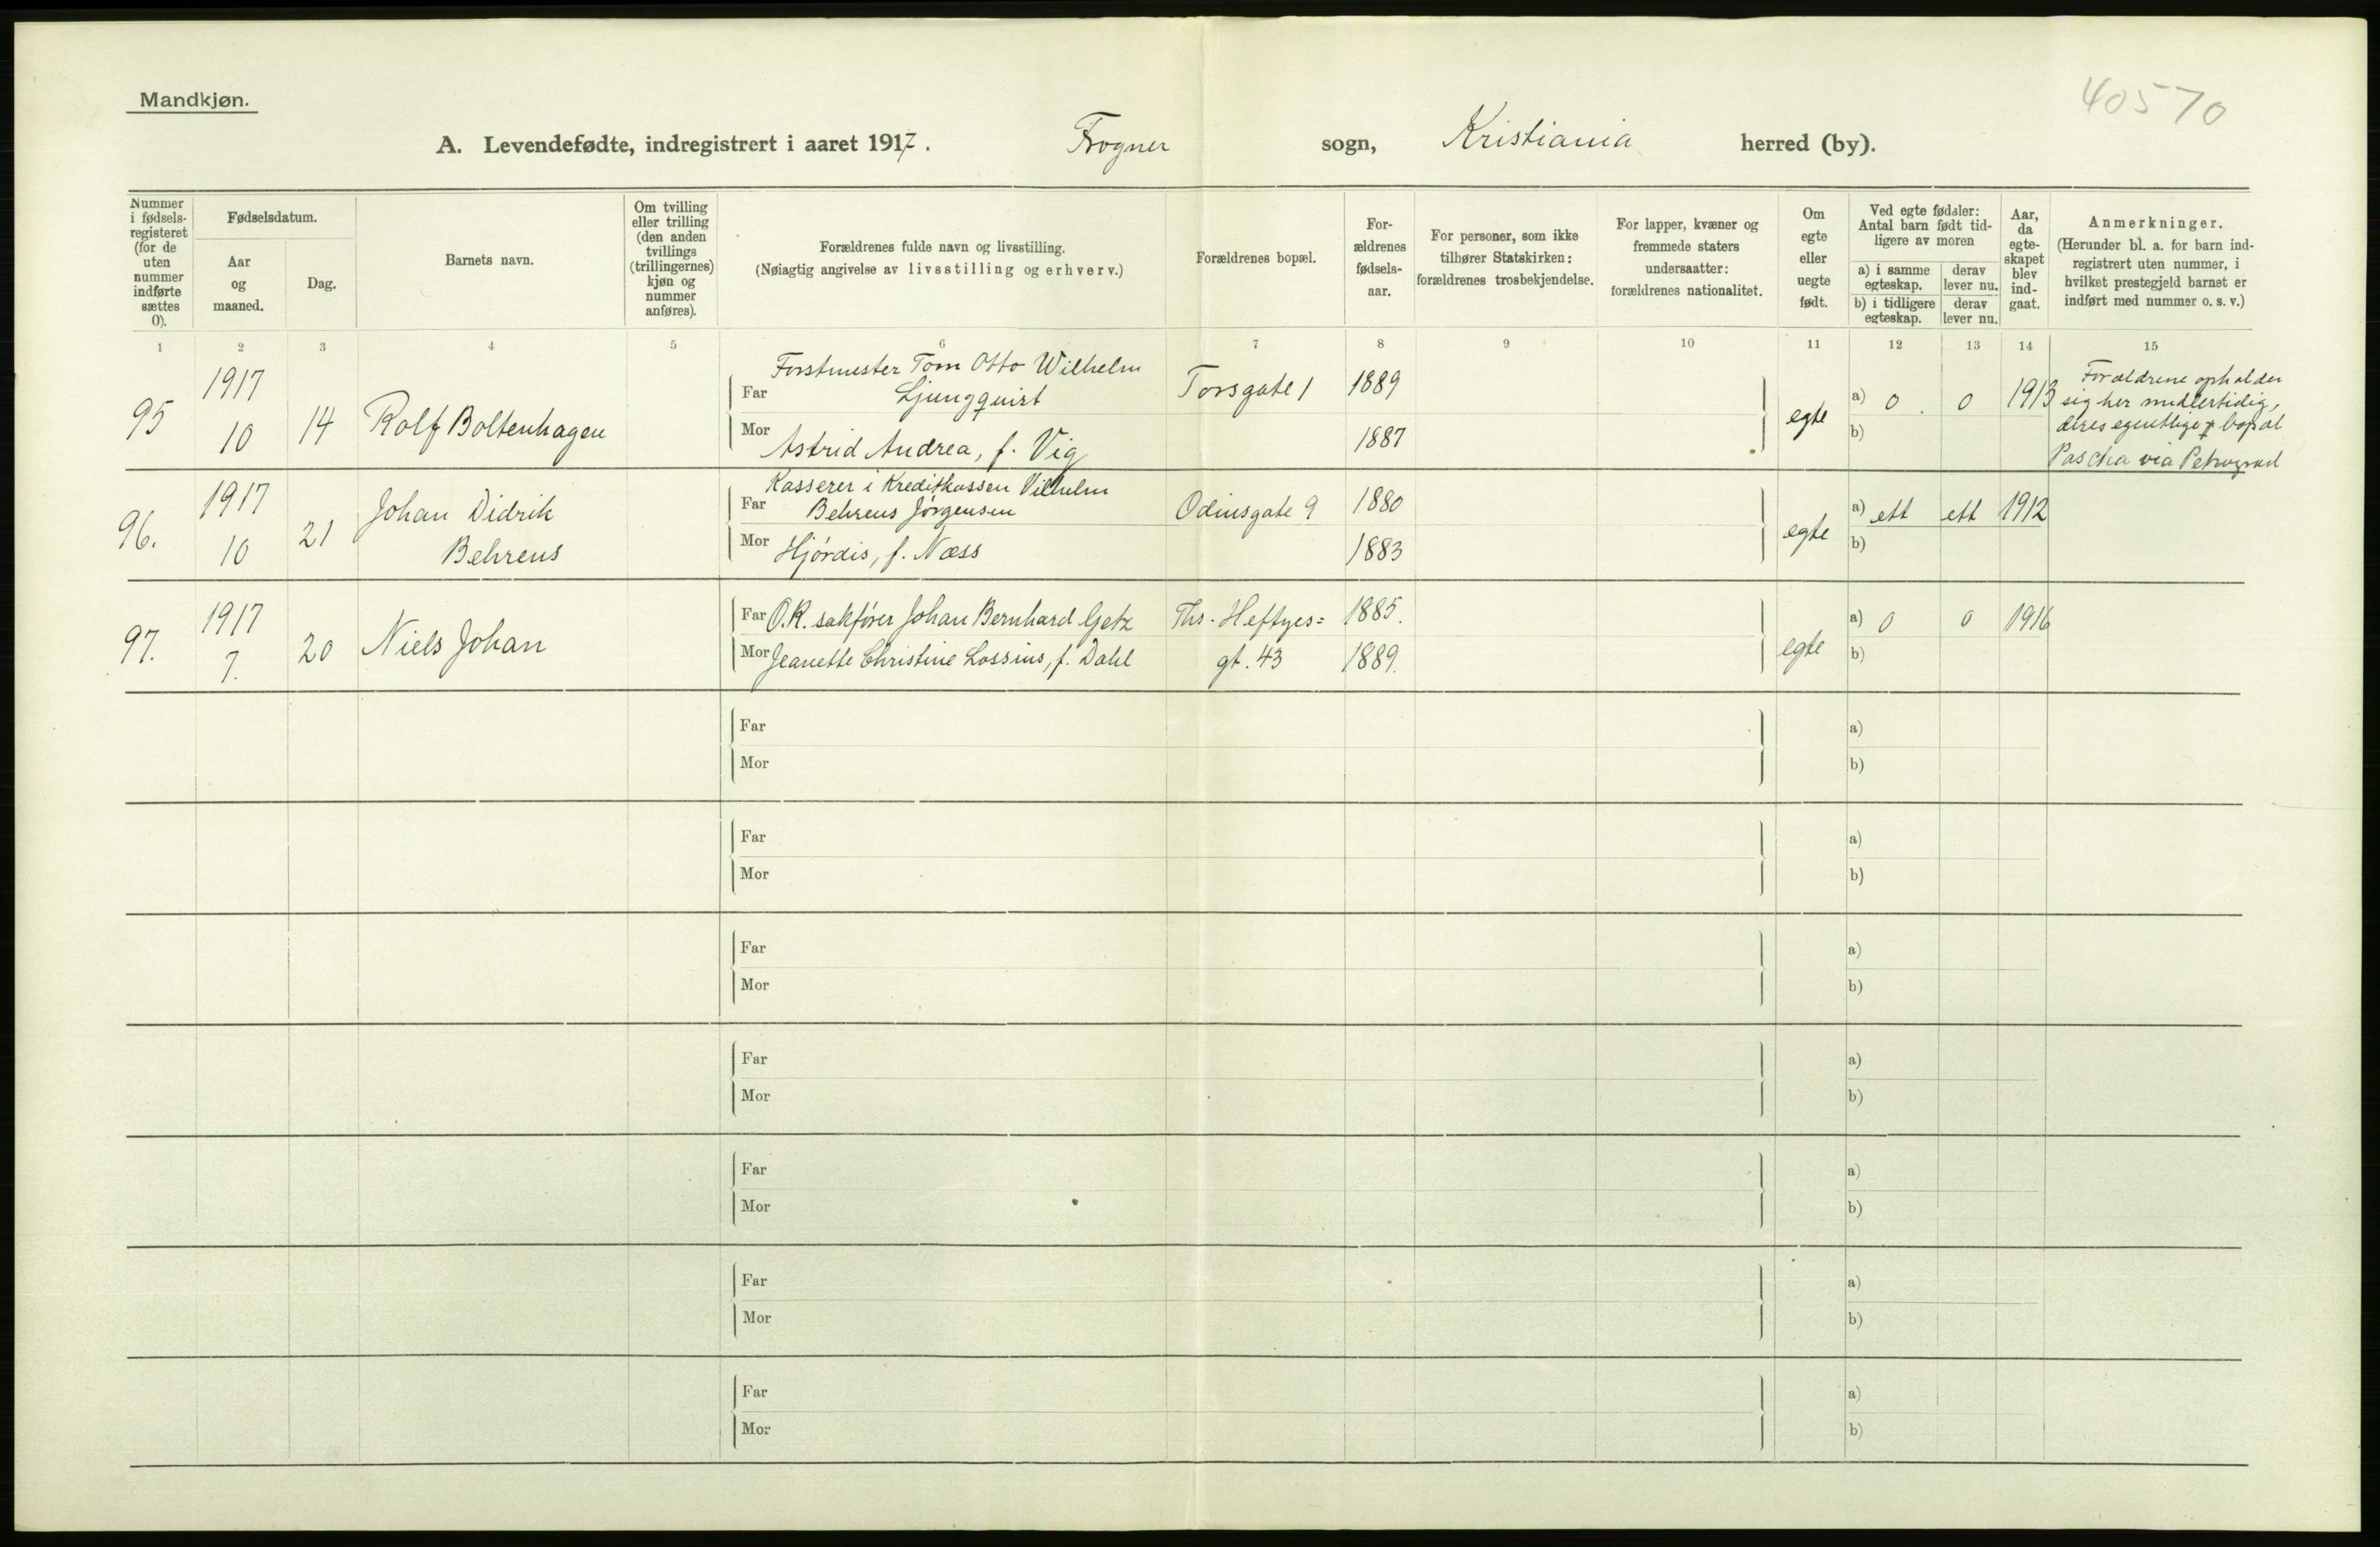 Mandkjøn.
40570
A. Levendefødte, indregistrert i aaret 1917. Frogner sogn, Kristiania herred (by).
Nummer i fødsels-registeret (for de uten nummer indførte sættes 0).
Fødselsdatum.
Aar og maaned.
Dag.
Barnets navn.
Om tvilling eller trilling (den anden tvillings (trillingernes) kjøn og nummer anføres).
Forældrenes fulde navn og livsstilling.
(Nøiagtig angivelse av livsstilling og erhverv.)
Forældrenes bopæl.
For-ældrenes fødsels-aar.
For personer, som ikke tilhører Statskirken: forældrenes trosbekjendelse.
For lapper, kvæner og fremmede staters undersaatter: forældrenes nationalitet.
Om egte eller uegte født.
Ved egte fødsler: Antal barn født tid-ligere av moren
a) i samme egteskap.
derav lever nu.
b) i tidligere egteskap.
derav lever nu.
Aar, da egte-skapet blev ind-gaat.
Anmerkninger.
(Herunder bl. a. for barn ind-registrert uten nummer, i hvilket prestegjeld barnet er indført med nummer o. s. v.)
1 2 3 4 5 6 7 8 9 10 11 12 13 14 15
95 1917 10 14 Rolf Boltenhagen
Forstmester Tom Otto Wilhelm
Far Ljungquist Torsgate 1 1889
Mor Astrid Andrea, f. Vig 1887
egte a) 0. 0 1913
b)
Forældrene opholder
sig her midlertidig,
deres egentlige bopæl
Pascha via Petrograd
96. 1917 10 21 Johan Didrik
Behrens
Kasserer i Kreditkassen Vilhelm
Far Behrens Jørgensen Odinsgate 9 1880
Mor Hjørdis, f. Næss 1883
egte a) ett ett 1912
b)
97. 1917 7. 20 Niels Johan
Far O.R. sakfører Johan Bernhard Getz Ths. Heftyes= 1885.
Mor Jeanette Christine Lossius, f. Dahl gt. 43 1889.
egte a) 0 0 1916
b)
Far a)
Mor b)
Far a)
Mor b)
Far a)
Mor b)
Far a)
Mor b)
Far a)
Mor b)
Far a)
Mor b)
Far a)
Mor b)